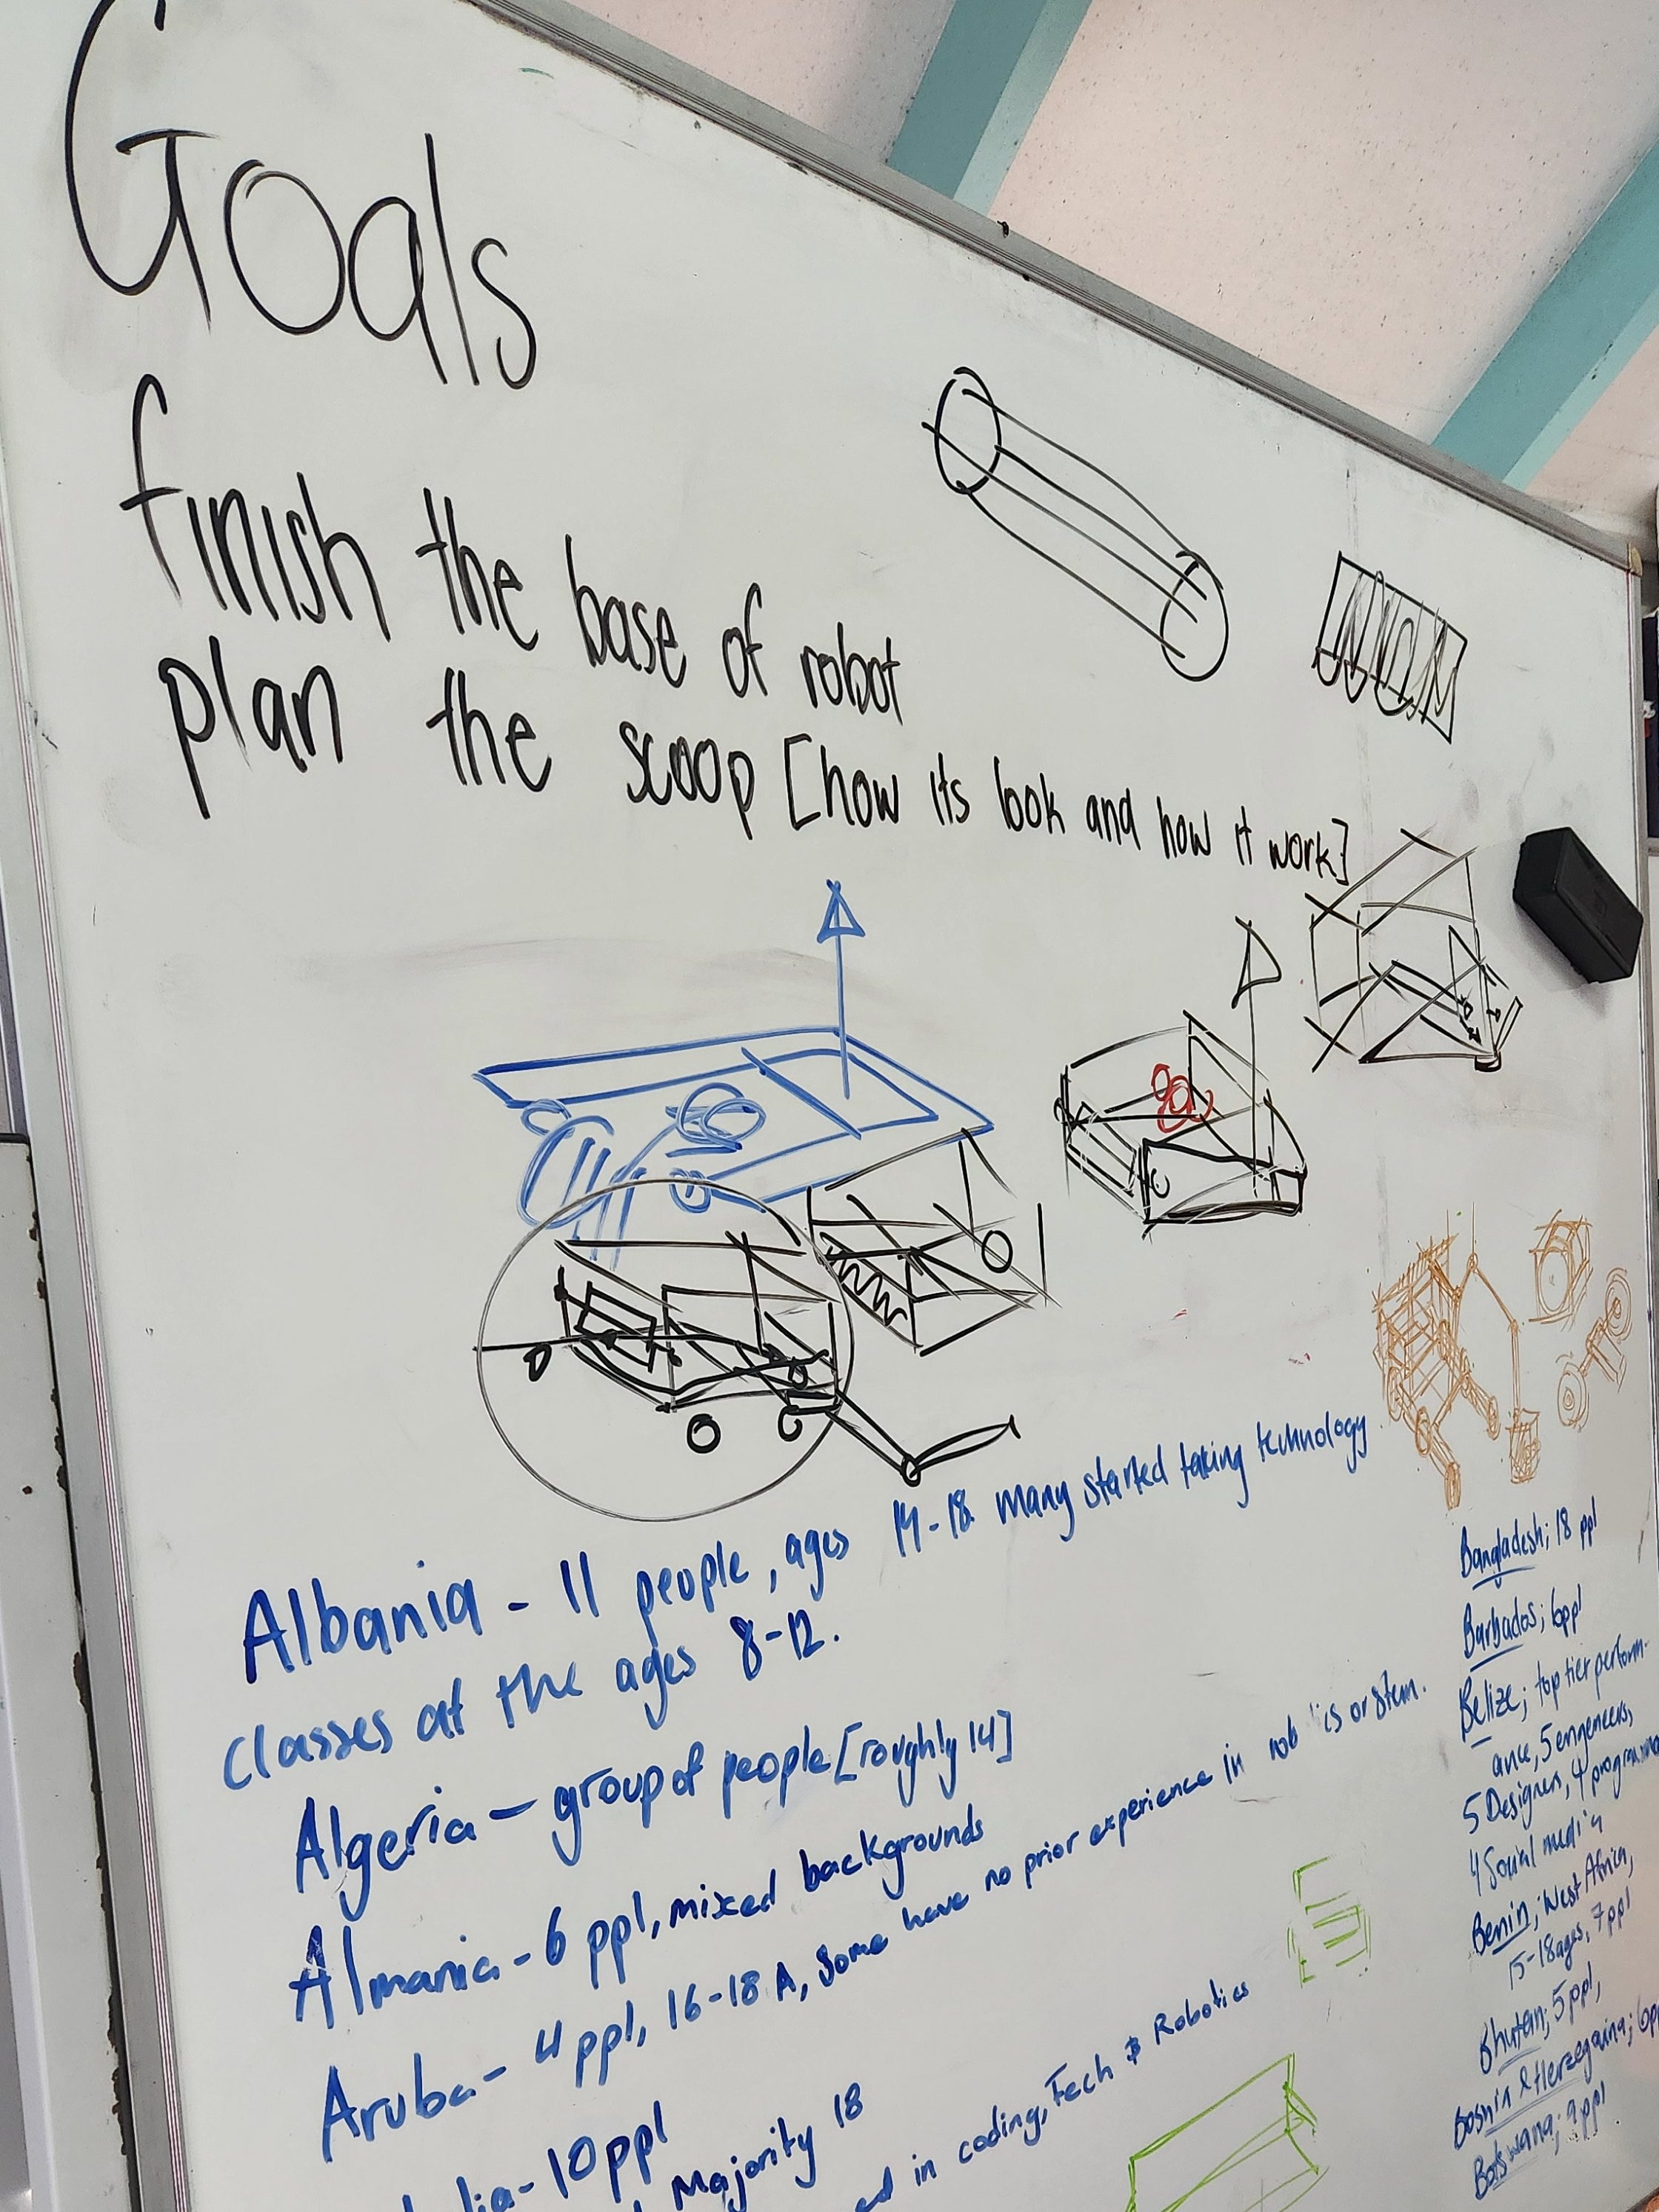 Goals
finish the base of robot
plan the scoop [how its look and how it work]
Albania - 11 people, ages 14-18 many started taking technology
classes at the ages 8-12.
Algeria - group of people [roughly 14]
Almania - 6 ppl, mixed backgrounds
Aruba - 4 ppl, 16-18 A, Some have no prior experience in or Stem.
- 10 ppl
Majority 18
in coding, Tech & Robotics
Bangladesh; 18 ppl
Barbados; 6ppl
Belize; top tier perform-
ance, 5 enneneers,
5 Designers, 4
4 Social media
Benin; West Africa,
15-18 ages, 7ppl
Bhutan; 5 ppl,
Bosnin & Herzegaina;
Botswana; 9ppl